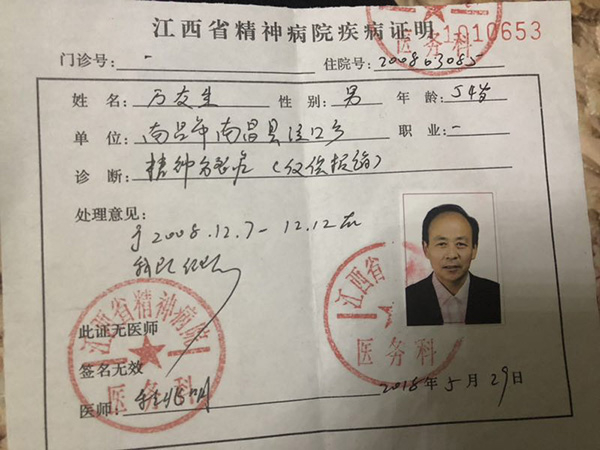 江西省精神病院疾病证明
1010653
门诊号: - 住院号: 200863085
姓 名: 万友生 性 别: 男 年 龄: 54岁
单 位: 南昌市南昌县泾口乡 职 业: -
诊 断: 精神分裂症 (仅供报销)
处理意见:
于2008.12.7-12.12在
我院住院
江西省精神病院
医务科
此证无医师
签名无效
医师:
江西省
医务科
2018年5月29日
医务科